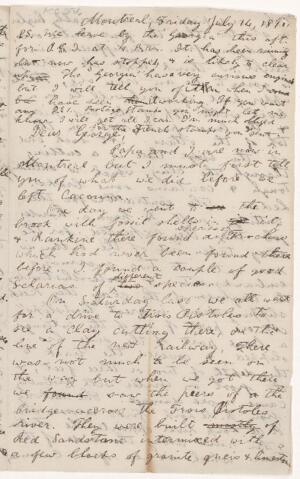 Montreal, Friday July 14, 1871
We leave by the Georgia this aft.
for at 4 P.M. It has been raining
but now has stopped, & is likely to clear
The Georgia has a very curious engine
but I will tell you of it when I
have been If you want
any stamps you might let me
know I will get all I can. I'm much obliged
for the French stamps you sent
Dear George,
Papa and I are now in
Montreal, but I must first tell
you of what we did before we
left Cacouna.
One day we went to the
brook with fossil shells in it
& Rankine there found a
which had never been found there
before. I found a couple of good
of different species.
On Saturday last we all went
for a drive to Trois Pistoles to
see a clay cutting there, on the
line of the new railway. There
was not much to be seen on
the way but when we got there
we found saw the piers of the
bridge across the Trois Pistoles
river. They were built mostly of
Red Sandstone intermixed with
a few blocks of granite, gneis & limeston